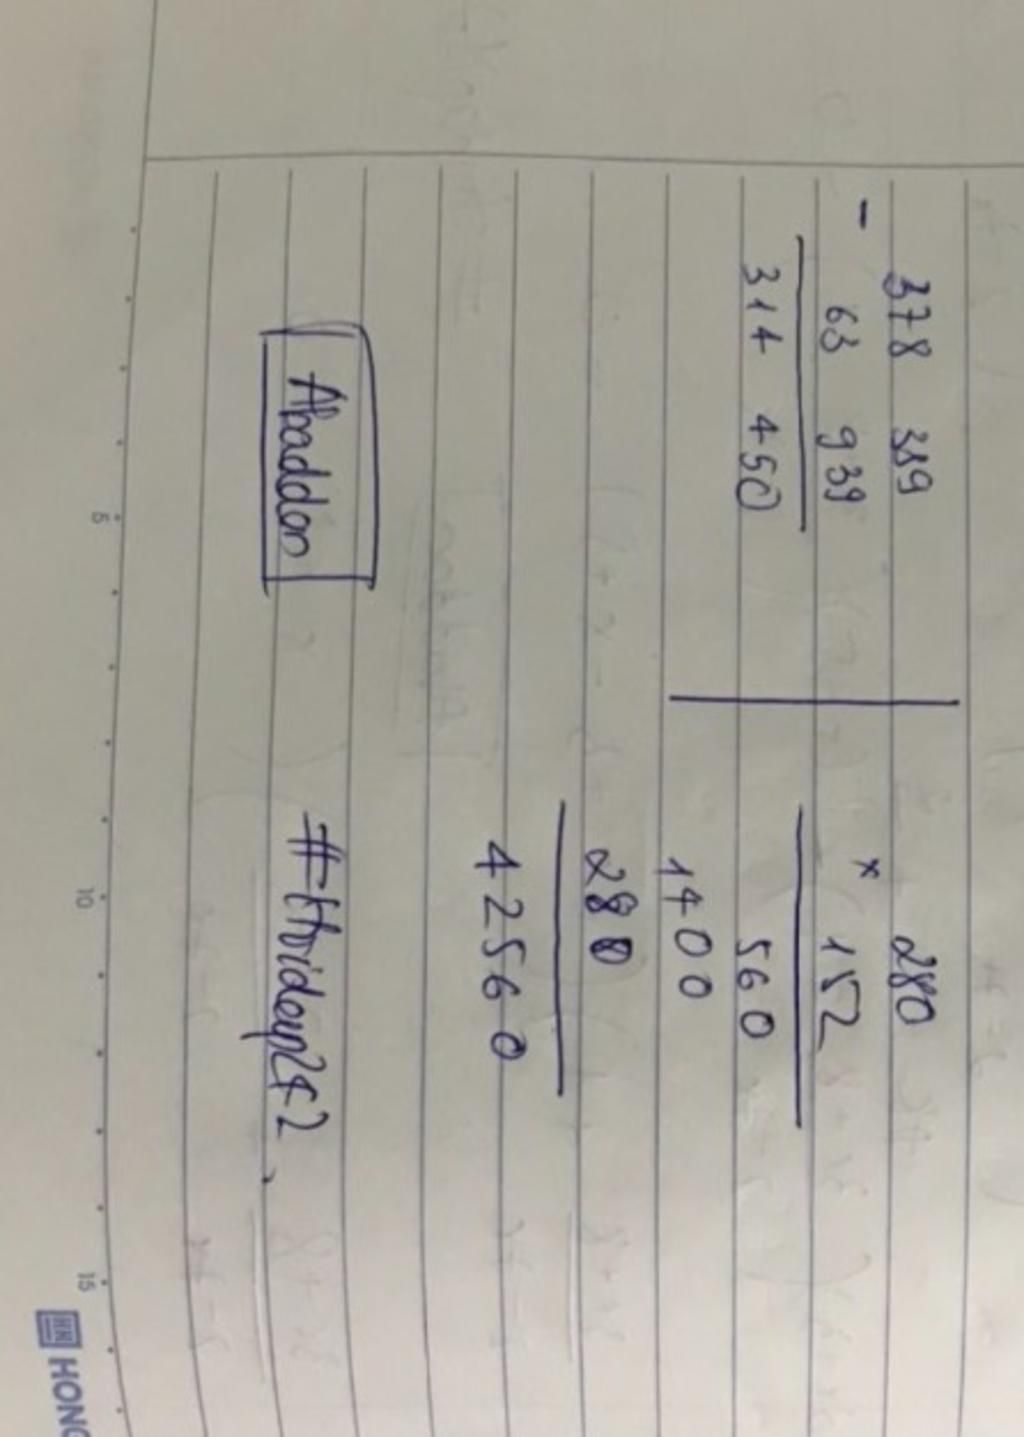 378 389
- 63 939
314 450
280
× 152
560
1400
280
42560
Abaddon
#Hridoy242
5 10 15
HH HONG